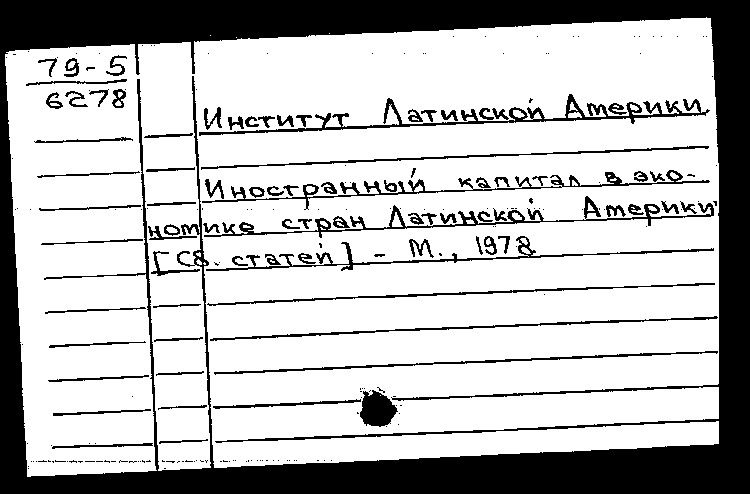 79-5
6278
Институт Латинской Америки.
Иностранный капитал в эко-
номике стран Латинской Америки.
[Сб. статей] - М., 1978